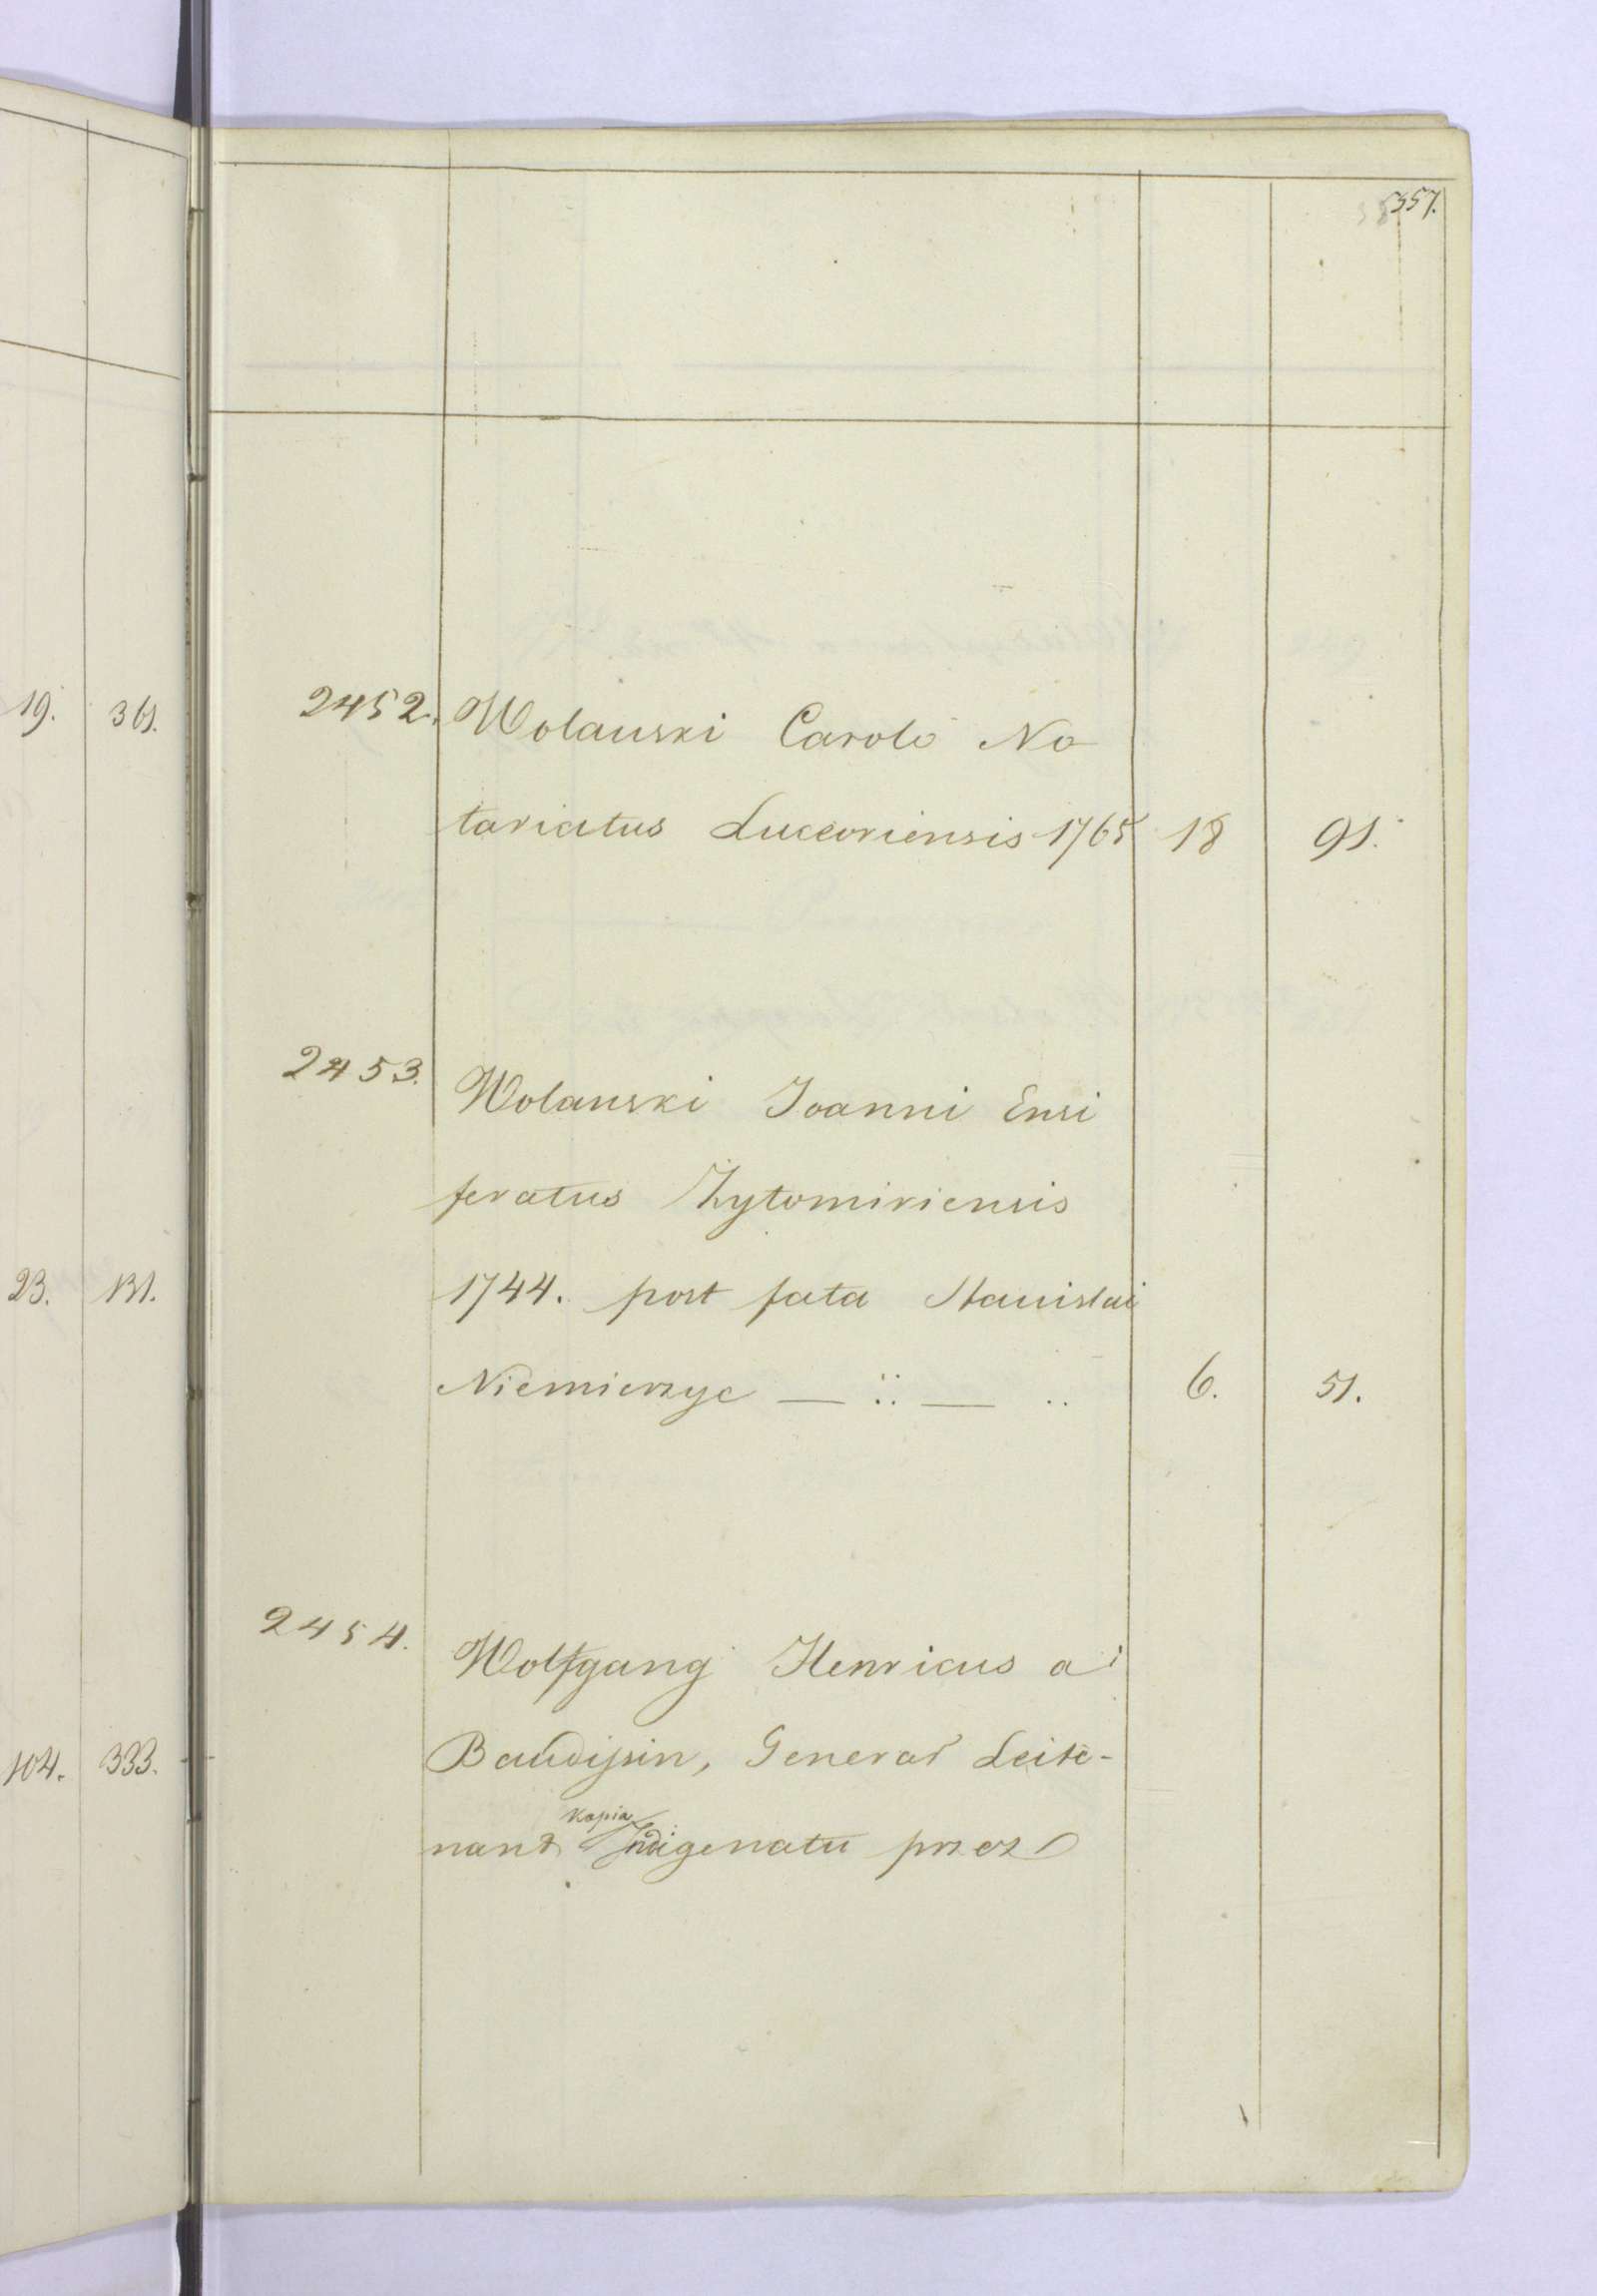 357.
2452. Wolanski Carolo No
tariatus Luceoriensis 1765 18 91.
2453. Wolanski Joanni Ensi
feratus Żytomiriensis
1744. post fata Stanislai
Niemierzyc — :: — .. 6. 51.
2454. Wolfgang Henricus a
Baudissin, Generał Leite-
nant Kopia Indigenatu przez
19. 361.
23. 131.
104. 333.